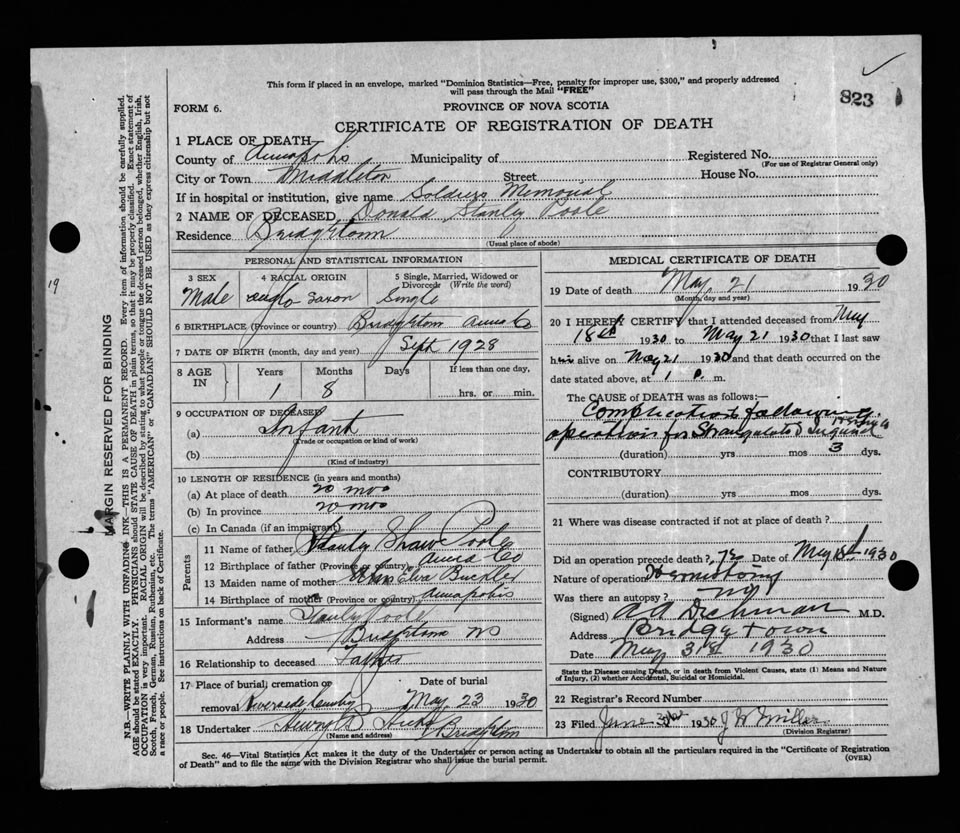 This form if placed in an envelope, marked "Dominion Statistics—Free, penalty for improper use, $300," and properly addressed
will pass through the Mail "FREE"
823
FORM 6.
PROVINCE OF NOVA SCOTIA
CERTIFICATE OF REGISTRATION OF DEATH
1 PLACE OF DEATH
County of Annapolis Municipality of Registered No.
(For use of Registrar General only)
City or Town Middleton Street House No.
If in hospital or institution, give name Soldiers Memorial
2 NAME OF DECEASED Donald Stanley Poole
Residence Bridgetown
(Usual place of abode)
PERSONAL AND STATISTICAL INFORMATION
3 SEX 4 RACIAL ORIGIN 5 Single, Married, Widowed or
Divorced (Write the word)
Male Anglo Saxon Single
6 BIRTHPLACE (Province or country) Bridgetown Anna Co
7 DATE OF BIRTH (month, day and year) Sept 1928
8 AGE IN Years Months Days If less than one day,
1 8 hrs. or min.
9 OCCUPATION OF DECEASED
(a) Infant
(Trade or occupation or kind of work)
(b)
(Kind of industry)
10 LENGTH OF RESIDENCE (in years and months)
(a) At place of death 20 mos
(b) In province 20 mos
(c) In Canada (if an immigrant)
Parents
11 Name of father Stanley Shaw Poole
12 Birthplace of father (Province or country) Anna Co
13 Maiden name of mother Elva Buckler
14 Birthplace of mother (Province or country) Annapolis
15 Informant's name Stanley Poole
Address Bridgetown NS
16 Relationship to deceased Father
17 Place of burial, cremation or Date of burial
removal Riverside May 23 1930
18 Undertaker Henry B Hicks Bridgetown
(Name and address)
MEDICAL CERTIFICATE OF DEATH
19 Date of death May 21 1930
(Month, day and year)
20 I HEREBY CERTIFY that I attended deceased from May
18th 1930 to May 21 1930 that I last saw
him alive on May 21 1930 and that death occurred on the
date stated above, at 1 P. m.
The CAUSE of DEATH was as follows:—
Complications following
operation for Strangulated Inguinal Hernia
(duration) yrs mos 3 dys.
CONTRIBUTORY
(duration) yrs mos dys.
21 Where was disease contracted if not at place of death?
Did an operation precede death? Yes Date of May 18th 1930
Nature of operation
Was there an autopsy? No
(Signed) M.D.
Address Bridgetown
Date May 31st 1930
State the Disease causing Death, or in death from Violent Causes, state (1) Means and Nature
of Injury, (2) whether Accidental, Suicidal or Homicidal.
22 Registrar's Record Number
23 Filed June 1930 J W Miller
(Division Registrar)
Sec. 46—Vital Statistics Act makes it the duty of the Undertaker or person acting as Undertaker to obtain all the particulars required in the "Certificate of Registration
of Death" and to file the same with the Division Registrar who shall issue the burial permit.
(OVER)
MARGIN RESERVED FOR BINDING
N.B.—WRITE PLAINLY WITH UNFADING INK—THIS IS A PERMANENT RECORD. Every item of information should be carefully supplied.
AGE should be stated EXACTLY. PHYSICIANS should STATE CAUSE OF DEATH in plain terms, so that it may be properly classified. Exact statement of
OCCUPATION is very important. RACIAL ORIGIN will be described by stating to what people or tongue the deceased person belonged, whether English, Irish,
Scotch, French, German, Russian, Ruthenian, etc. The terms "AMERICAN" or "CANADIAN" SHOULD NOT BE USED as they express citizenship but not
a race or people. See instructions on back of Certificate.
19